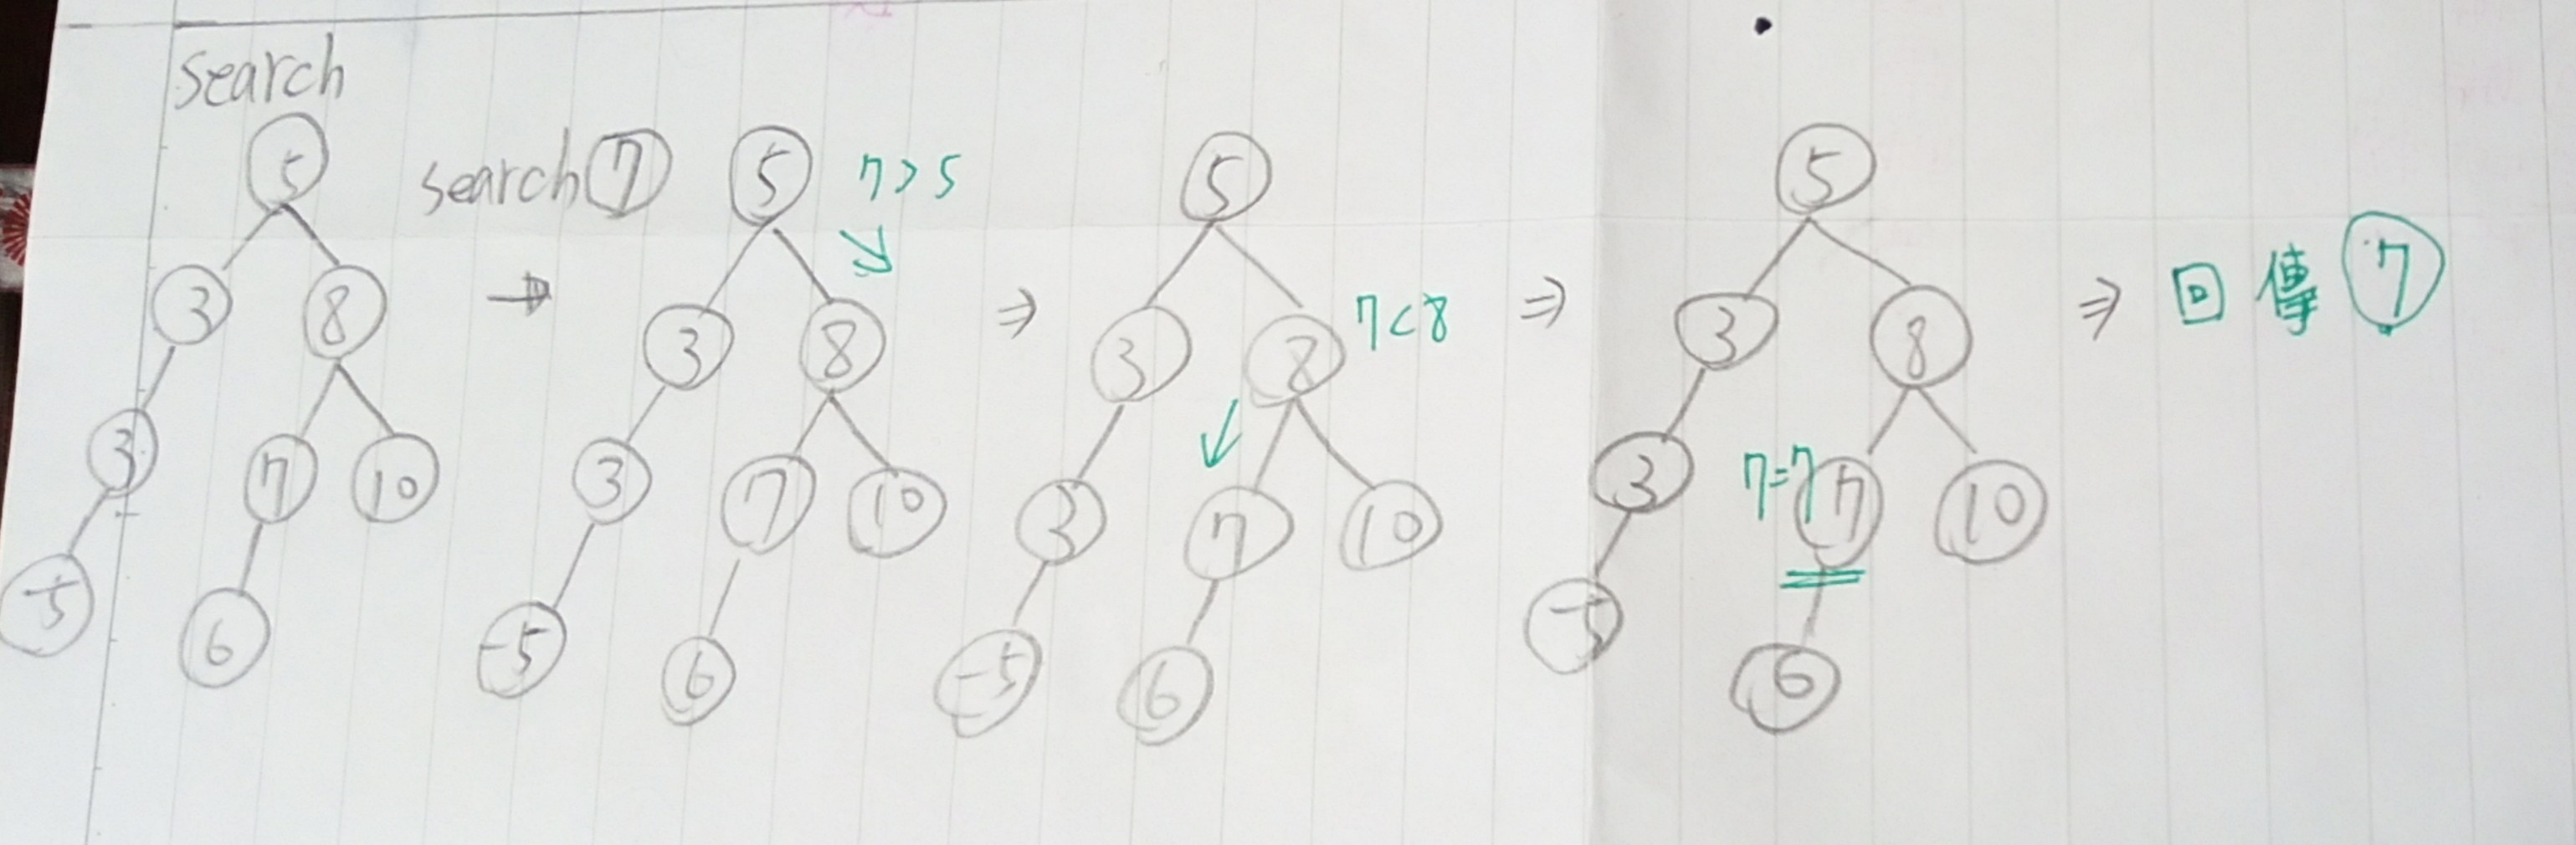 search
5
3 8
3 7 10
-5 6
search 7
5 7>5
3 8
3 7 10
-5 6
5
3 8 7<8
3 7 10
-5 6
5
3 8
3 7=7 7 10
-5 6
回傳 7